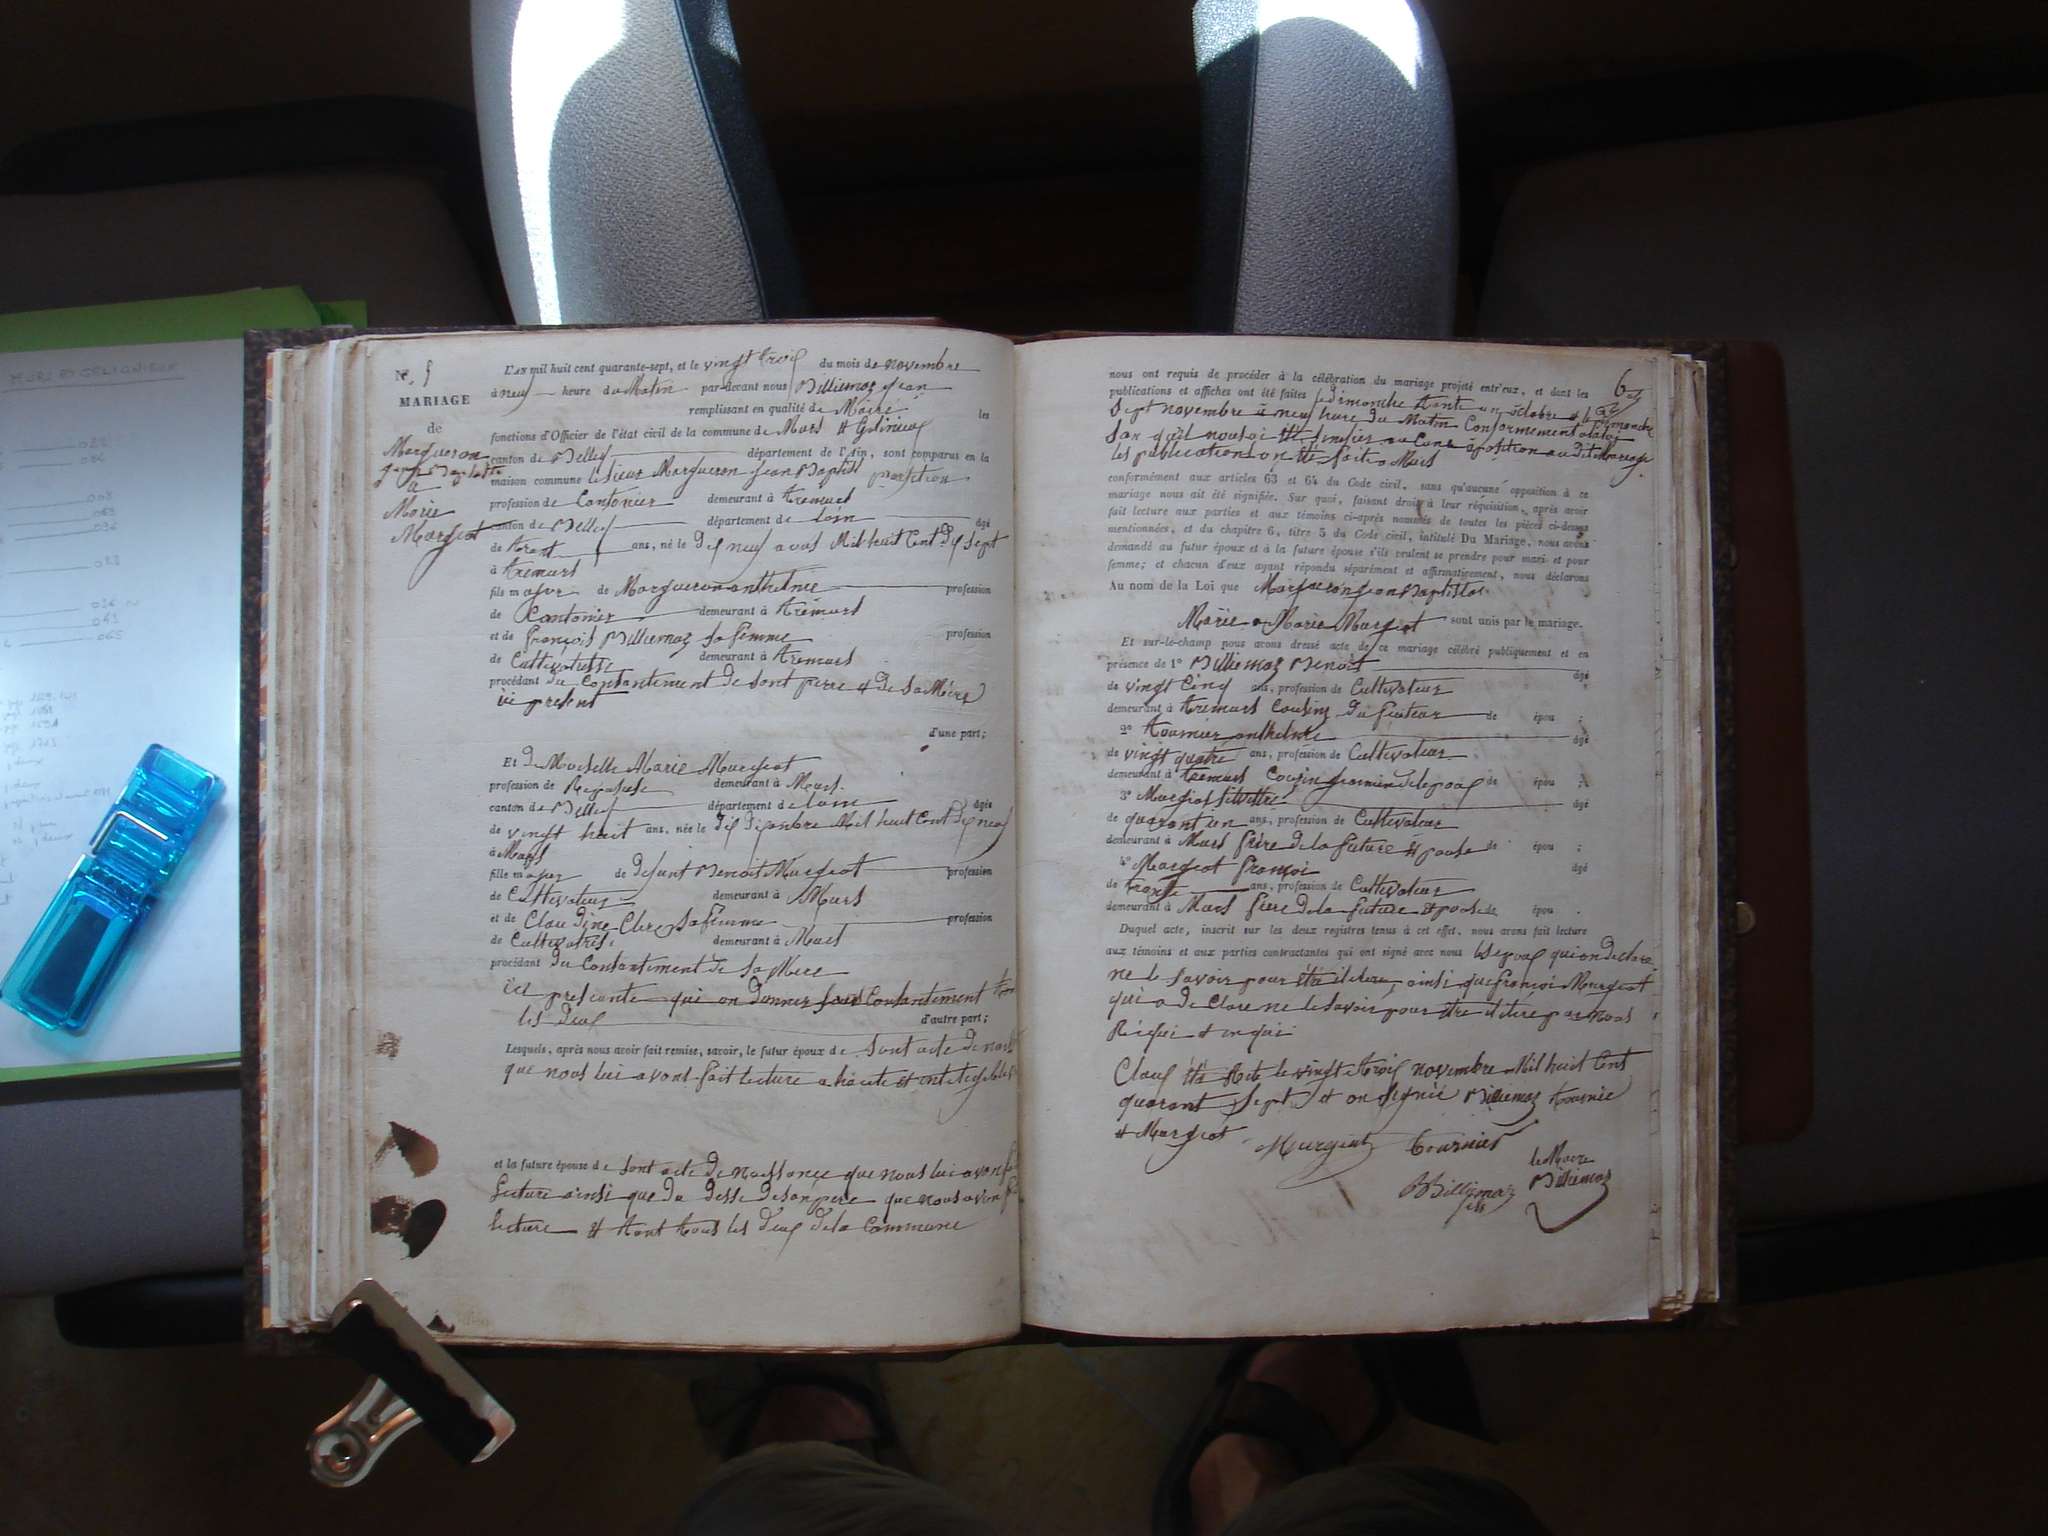 N.° 5
MARIAGE
de
Margueron
jean Baptiste
à
Marie
Murgeat
L'AN mil huit cent quarante-sept, et le vingt trois du mois de novembre
à neuf heure du Matin par-devant nous Billiemaz jean
remplissant en qualité de Maire les
fonctions d'Officier de l'état civil de la commune de Murs & Gelinieux
canton de Belley département de l'Ain, sont comparus en la
maison commune le sieur Margueron jean Baptist
profession de Cantonier demeurant à tremurs
canton de Belley département de lain âgé
de trent ans, né le dix neuf avril Mil huit Cent dix sept
à tremurs
fils majeur de Margueron anthelme profession
de Cantonier demeurant à tremurs
et de françois Billiemaz sa femme profession
de Cultivatrisse demeurant à tremurs
procédant du Consantement de sont perre & de sa Mère
ici present
d'une part;
Et de Moiselle Marie Murgeat
profession de demeurant à Murs.
canton de Belley département de lain âgée
de vingt huit ans, née le dix Mil huit Cent dix neuf
à Murs
fille majeur de defunt Benoit Murgeat profession
de Cultivateur demeurant à Murs
et de Claudine Clerc sa femme profession
de Cultivatrise demeurant à Murs
procédant du Consantement de sa Mere
ici presente qui on donner leur Consantement tous
les deux d'autre part;
Lesquels, après nous avoir fait remise, savoir, le futur époux de sont acte de
que nous lui avons fait lecture a haute & inteligible
et la future épouse de sont acte de naissance que nous lui avons
lecture ainsi que du desse de son père que nous avons
lecture & tont tous les deux de la Commune
6
nous ont requis de procéder à la célébration du mariage projeté entr'eux, et dont les
publications et affiches ont été faites dimanche trente un octobre &
sept novembre à neuf heure du Matin Conformement
san qu'il nous ai été aucune oposition au dit Mariage
les publication on été fait a Murs
conformément aux articles 63 et 64 du Code civil, sans qu'aucune opposition à ce
mariage nous ait été signifiée. Sur quoi, faisant droit à leur réquisition, après avoir
fait lecture aux parties et aux témoins ci-après nommés de toutes les pièces ci-dessus
mentionnées, et du chapitre 6, titre 5 du Code civil, intitulé Du Mariage, nous avons
demandé au futur époux et à la future épouse s'ils veulent se prendre pour mari et pour
femme; et chacun d'eux ayant répondu séparément et affirmativement, nous déclarons
Au nom de la Loi que Margueron jean Baptiste
Marie a Marie Murgeat sont unis par le mariage.
Et sur-le-champ nous avons dressé acte de ce mariage célébré publiquement et en
présence de 1° Billiemaz Benoit âgé
de vingt Cinq ans, profession de Cultivateur
demeurant à tremurs Cousin du futeur de époux ;
2° tournier anthelme âgé
de vingt quatre ans, profession de Cultivateur
demeurant à tremurs Cousin germain de lepoux de époux ;
3° Murgeat silvestre âgé
de quarant un ans, profession de Cultivateur
demeurant à Murs frère de la future épouse de épou ;
4° Murgeat françoi âgé
de trante ans, profession de Cultivateur
demeurant à Murs frère de la future épouse de épou .
Duquel acte, inscrit sur les deux registres tenus à cet effet, nous avons fait lecture
aux témoins et aux parties contractantes qui ont signé avec nous les epoux qui on declare
ne le savoir pour être iletere, ainsi que françoi Murgeat
qui a de Clare ne le savoir pour être iletere par nous
Requi & enqui
Claus été Acte le vingt trois novembre Mil huit Cent
quarant sept & on signié Billiemaz tournie
& Murgeat Murgeat tournier
le Maire
Billiemaz
BBilliemaz
fils